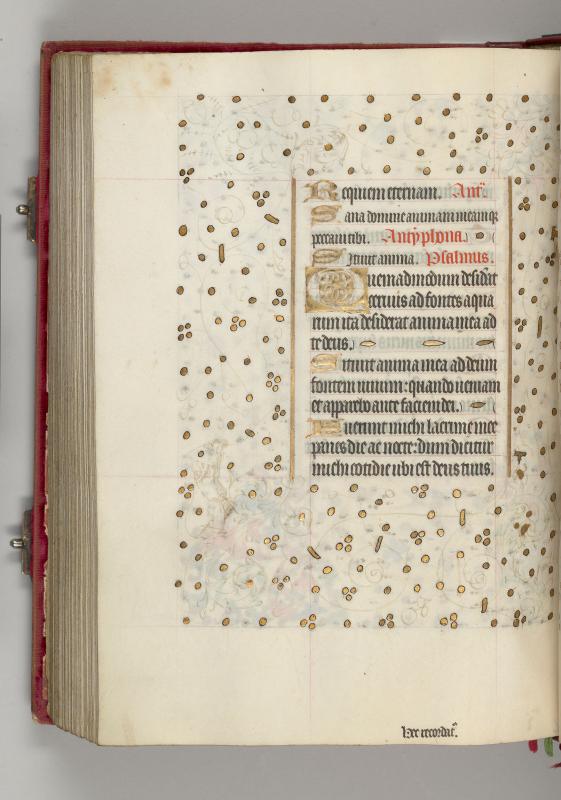 Requiem eternam. Ant̃.
Sana domine animam meam q̃
peccaui tibi. Antyphona.
Sitiuit anima. Psalmus.
Quemadmodum desid'at
ceruus ad fontes aqua
rum ita desiderat anima mea ad
te deus.
Sitiuit anima mea ad deum
fontem uiuum: quando ueniam
et apparebo ante faciem dei.
Fuerunt michi lacrime mee
panes die ac nocte: dum dicitur
michi cotidie ubi est deus tuus.
Ne recordar̃.